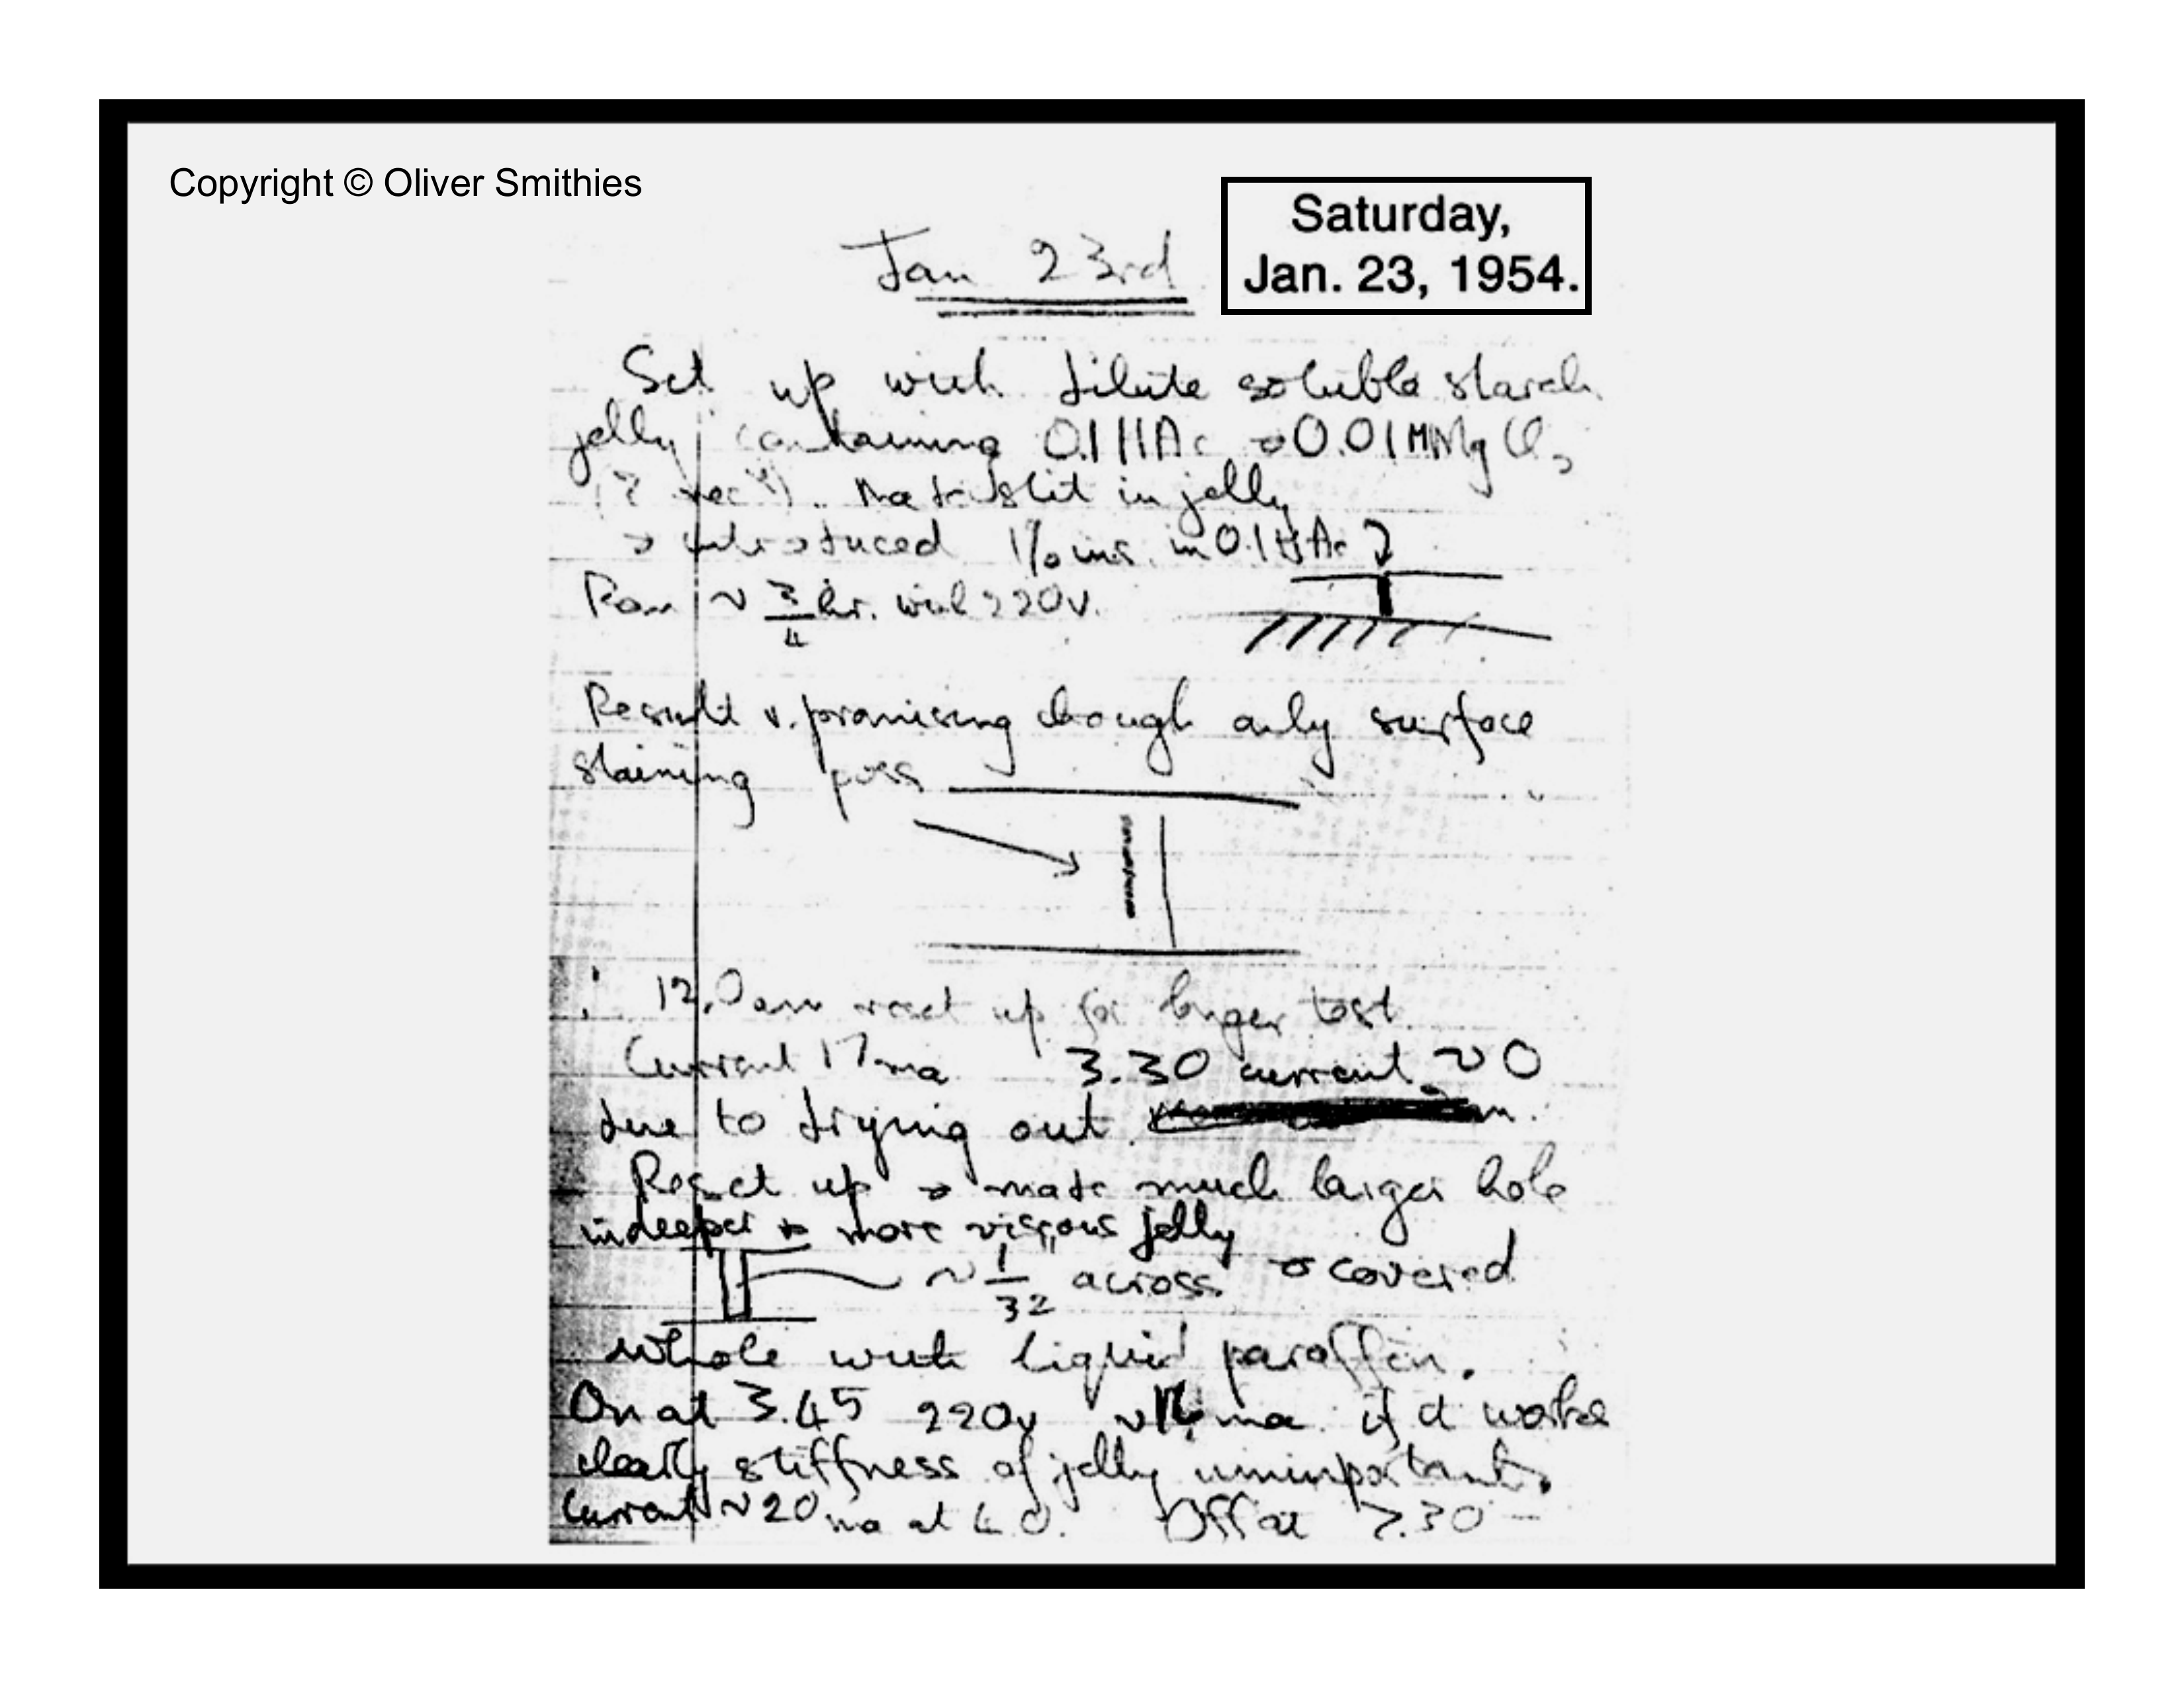 Copyright © Oliver Smithies
Saturday,
Jan. 23, 1954.
Jan 23rd
Set up with dilute soluble starch
jelly containing 0.1 HAc & 0.01M MgCl2
Made slit in jelly
& introduced 1% ins. in 0.1 HAc
Ran ~ 3/4 hr. with 220v.
Result v. promising though only surface
staining poss
∴ 12.0 am reset up for longer test.
Current 17 ma 3.30 current ~ 0
due to drying out.
Reset up & made much larger hole
in deeper & more viscous jelly
~ 1/32" across. & covered
whole with liquid paraffin.
On at 3.45 220v ~ ma if it works
clearly stiffness of jelly unimportant.
Current ~ 20 ma at 4.0. Off at 7.30